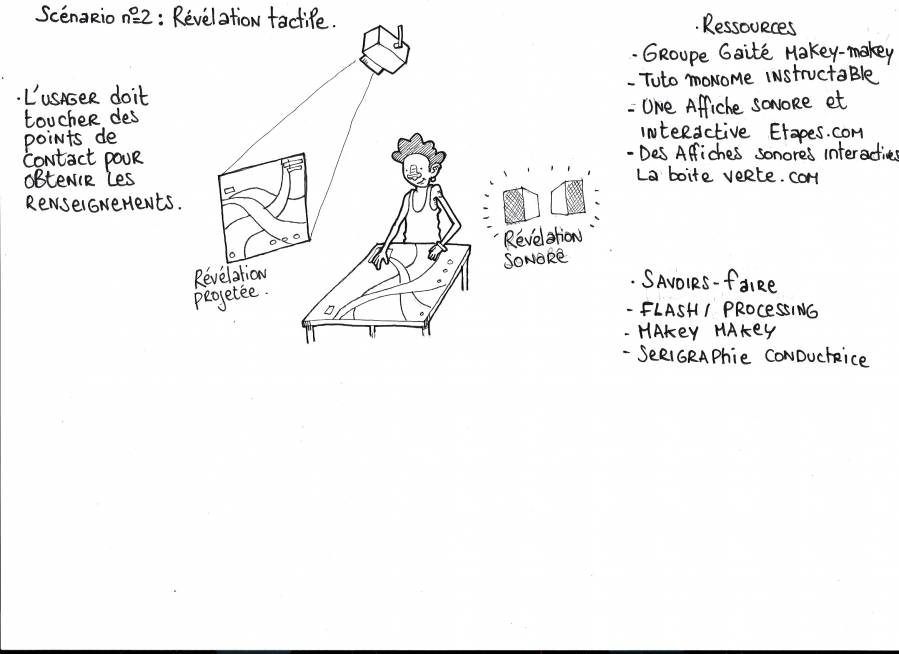 Scénario n°2 : Révélation tactile.
· L'USAGER doit
toucher des
points de
contact pour
obtenir les
renseignements.
Révélation
projetée.
Révélation
sonore
· Ressources
- Groupe Gaité Makey-makey
- Tuto monome instructable
- Une affiche sonore et
interactive Etapes.com
- Des Affiches sonores interactives
La boite verte.com
· Savoirs-faire
- FLASH / PROCESSING
- MAKEY MAKEY
- SERIGRAPhie CONDUCTRICE